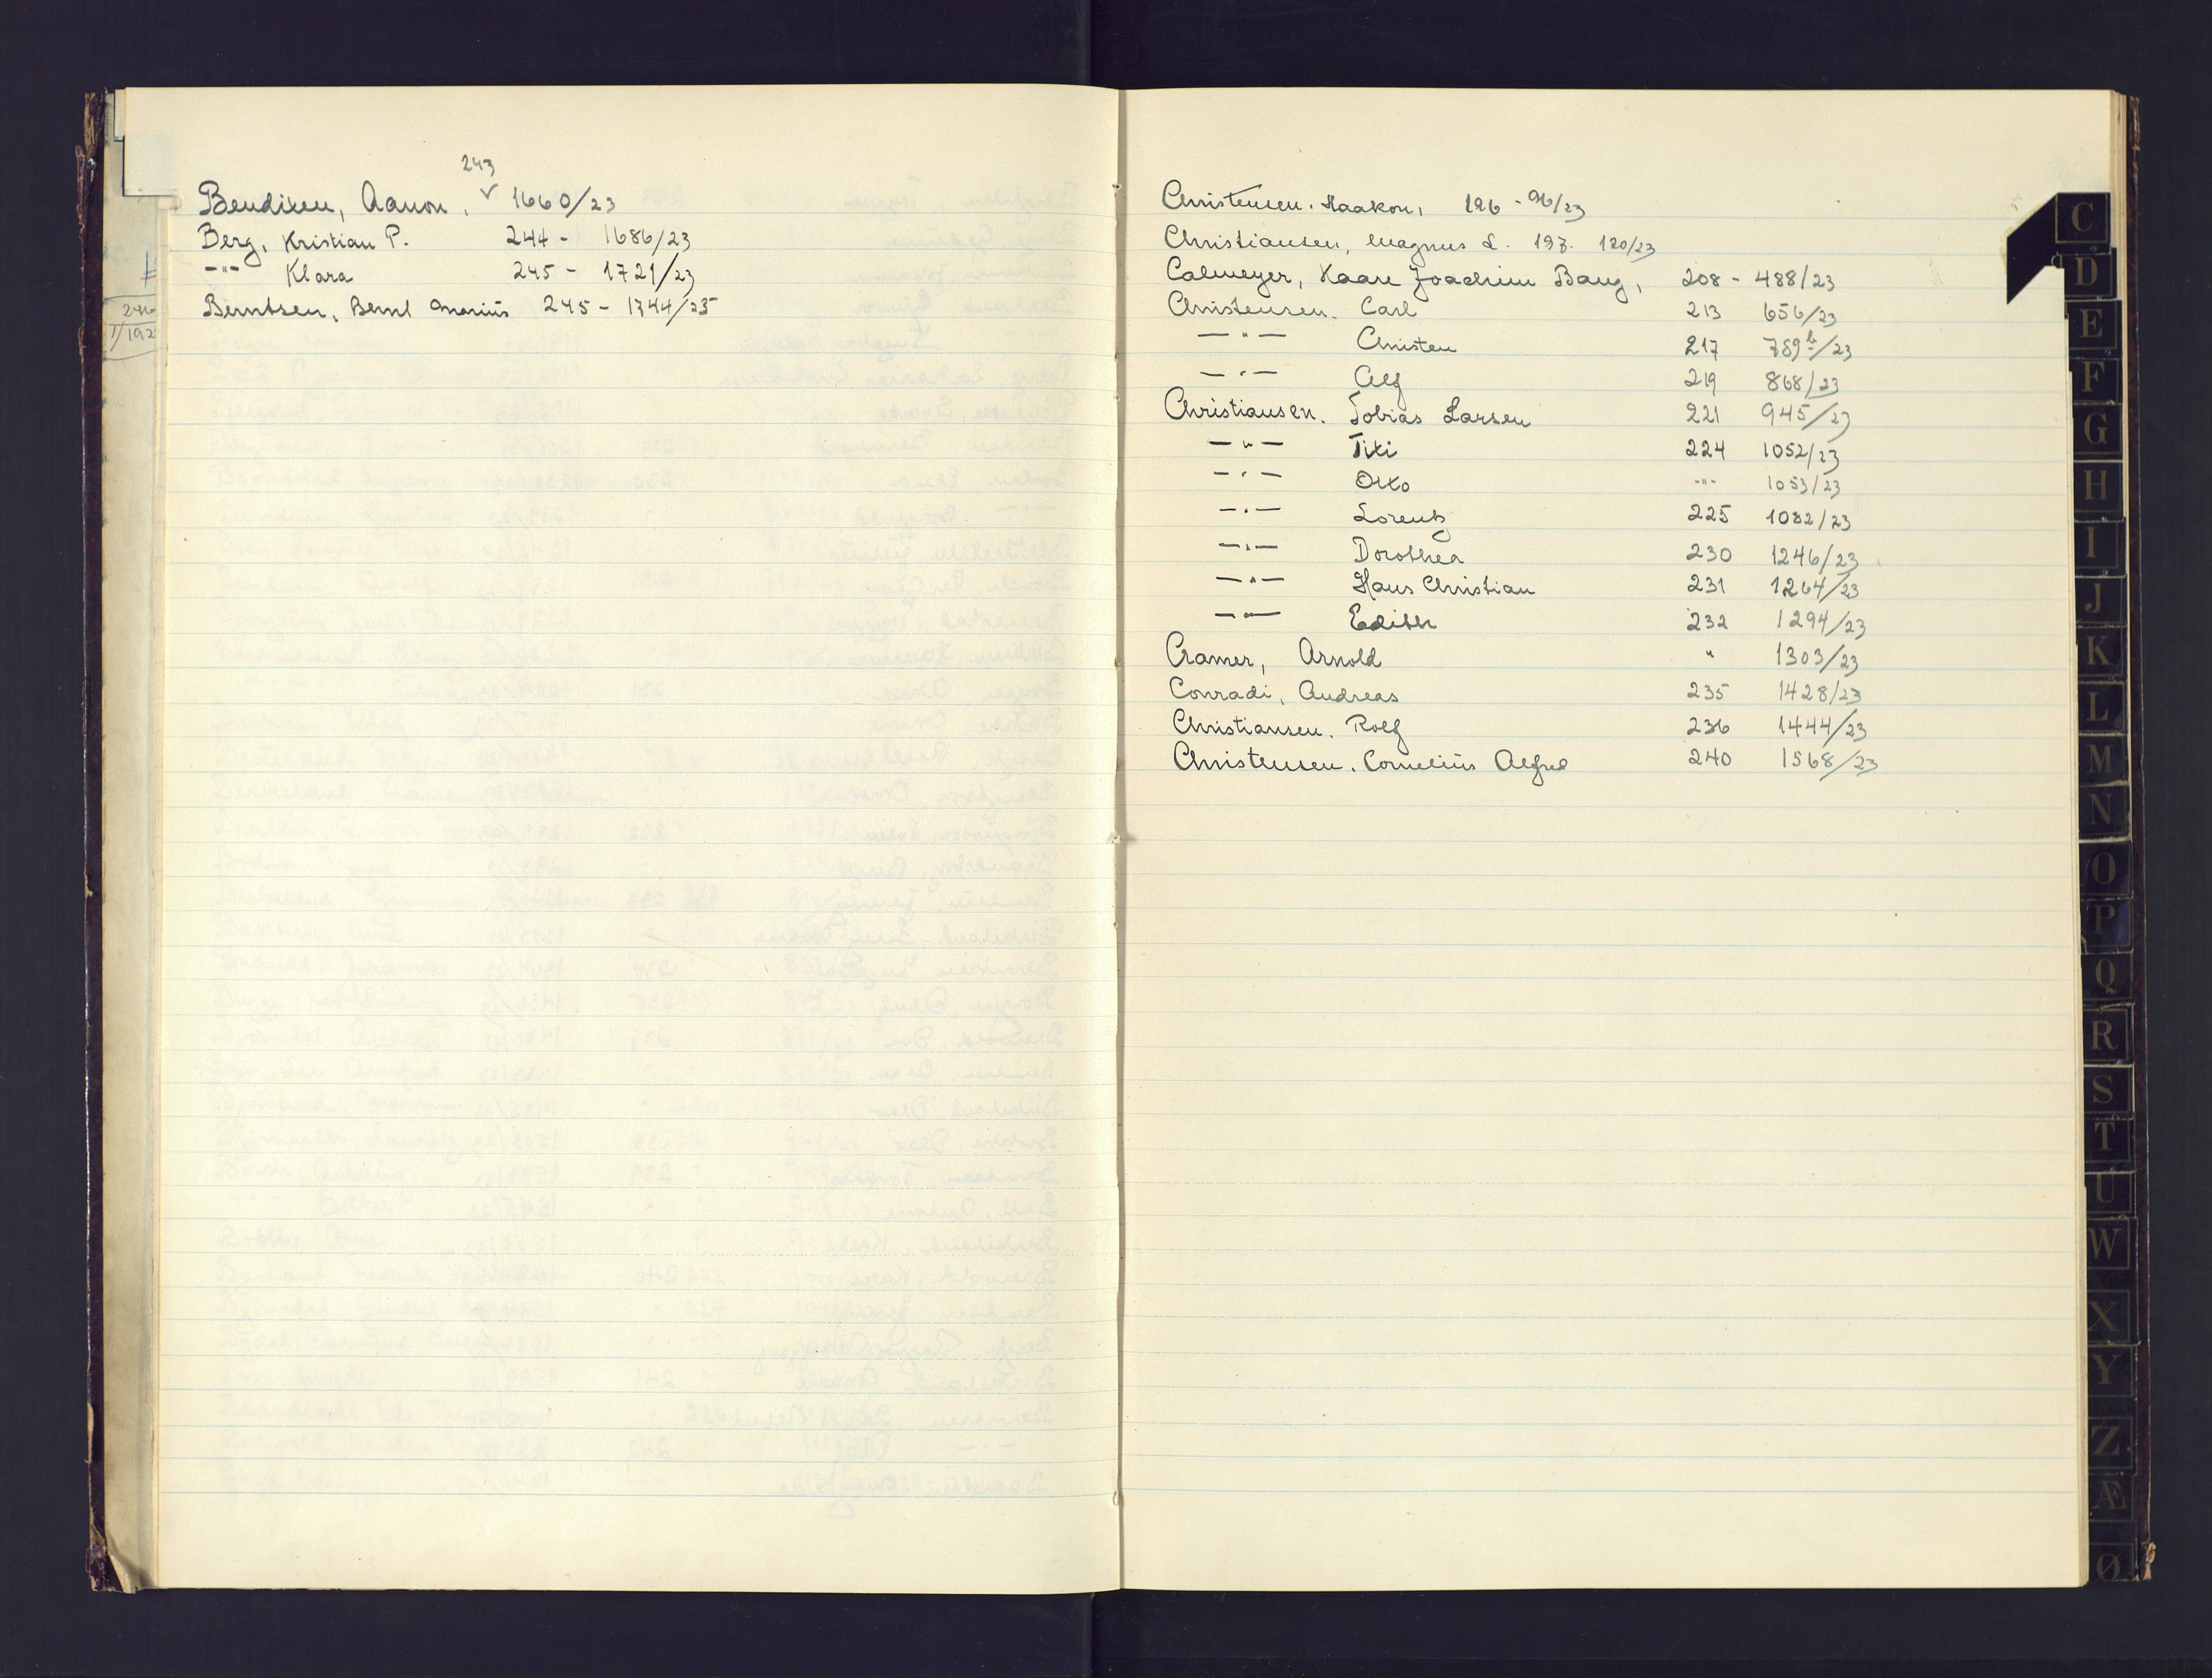 243
Bendixen, Aanon, √ 1660/23
Berg, Kristian P. 244 - 1686/23
-"- Klara 245 - 1721/23
Berntsen, Bernt Marius 245 - 1744/23
Christensen, Haakon, 196 - 96/23
Christiansen, Magnus L. 197. 120/23
Calmeyer, Kaare Joachim Bang, 208 - 488/23
Christensen. Carl 213 656/23
— " — Christen 217 789 b/23
— " — Alf 219 868/23
Christiansen. Tobias Larsen 221 945/23
— " — Titi 224 1052/23
— " — Otto -"- 1053/23
— " — Lorentz 225 1082/23
— " — Dorothea 230 1246/23
— " — Hans Christian 231 1264/23
— " — Edith 232 1294/23
Cramer, Arnold " 1303/23
Conradi, Andreas 235 1428/23
Christiansen. Rolf 236 1444/23
Christensen. Cornelius Alfred 240 1568/23
C
D
E
F
G
H
I
J
K
L
M
N
O
P
Q
R
S
T
U
W
X
Y
Z
Æ
Ø